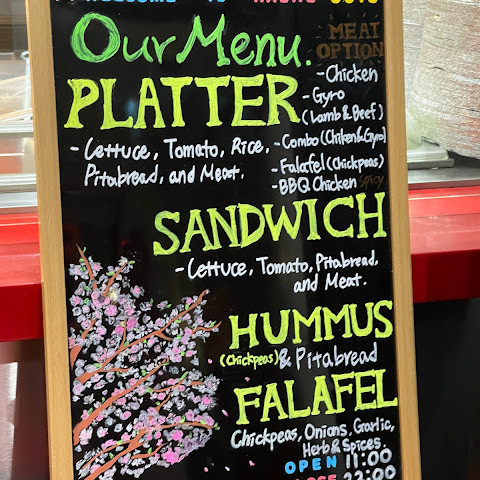 WELCOME TO
Our Menu.
MEAT
OPTION
PLATTER
- Chicken
- Gyro
(Lamb & Beef)
- Combo (Chiken & Gyro)
- Falafel (Chickpeas)
- BBQ Chicken Spicy
- Lettuce, Tomato, Rice,
Pitabread, and Meat.
SANDWICH
- Lettuce, Tomato, Pitabread,
and Meat.
HUMMUS
(Chickpeas) & Pitabread
FALAFEL
Chickpeas, Onions, Garlic,
Herb & Spices.
OPEN 11:00
22:00